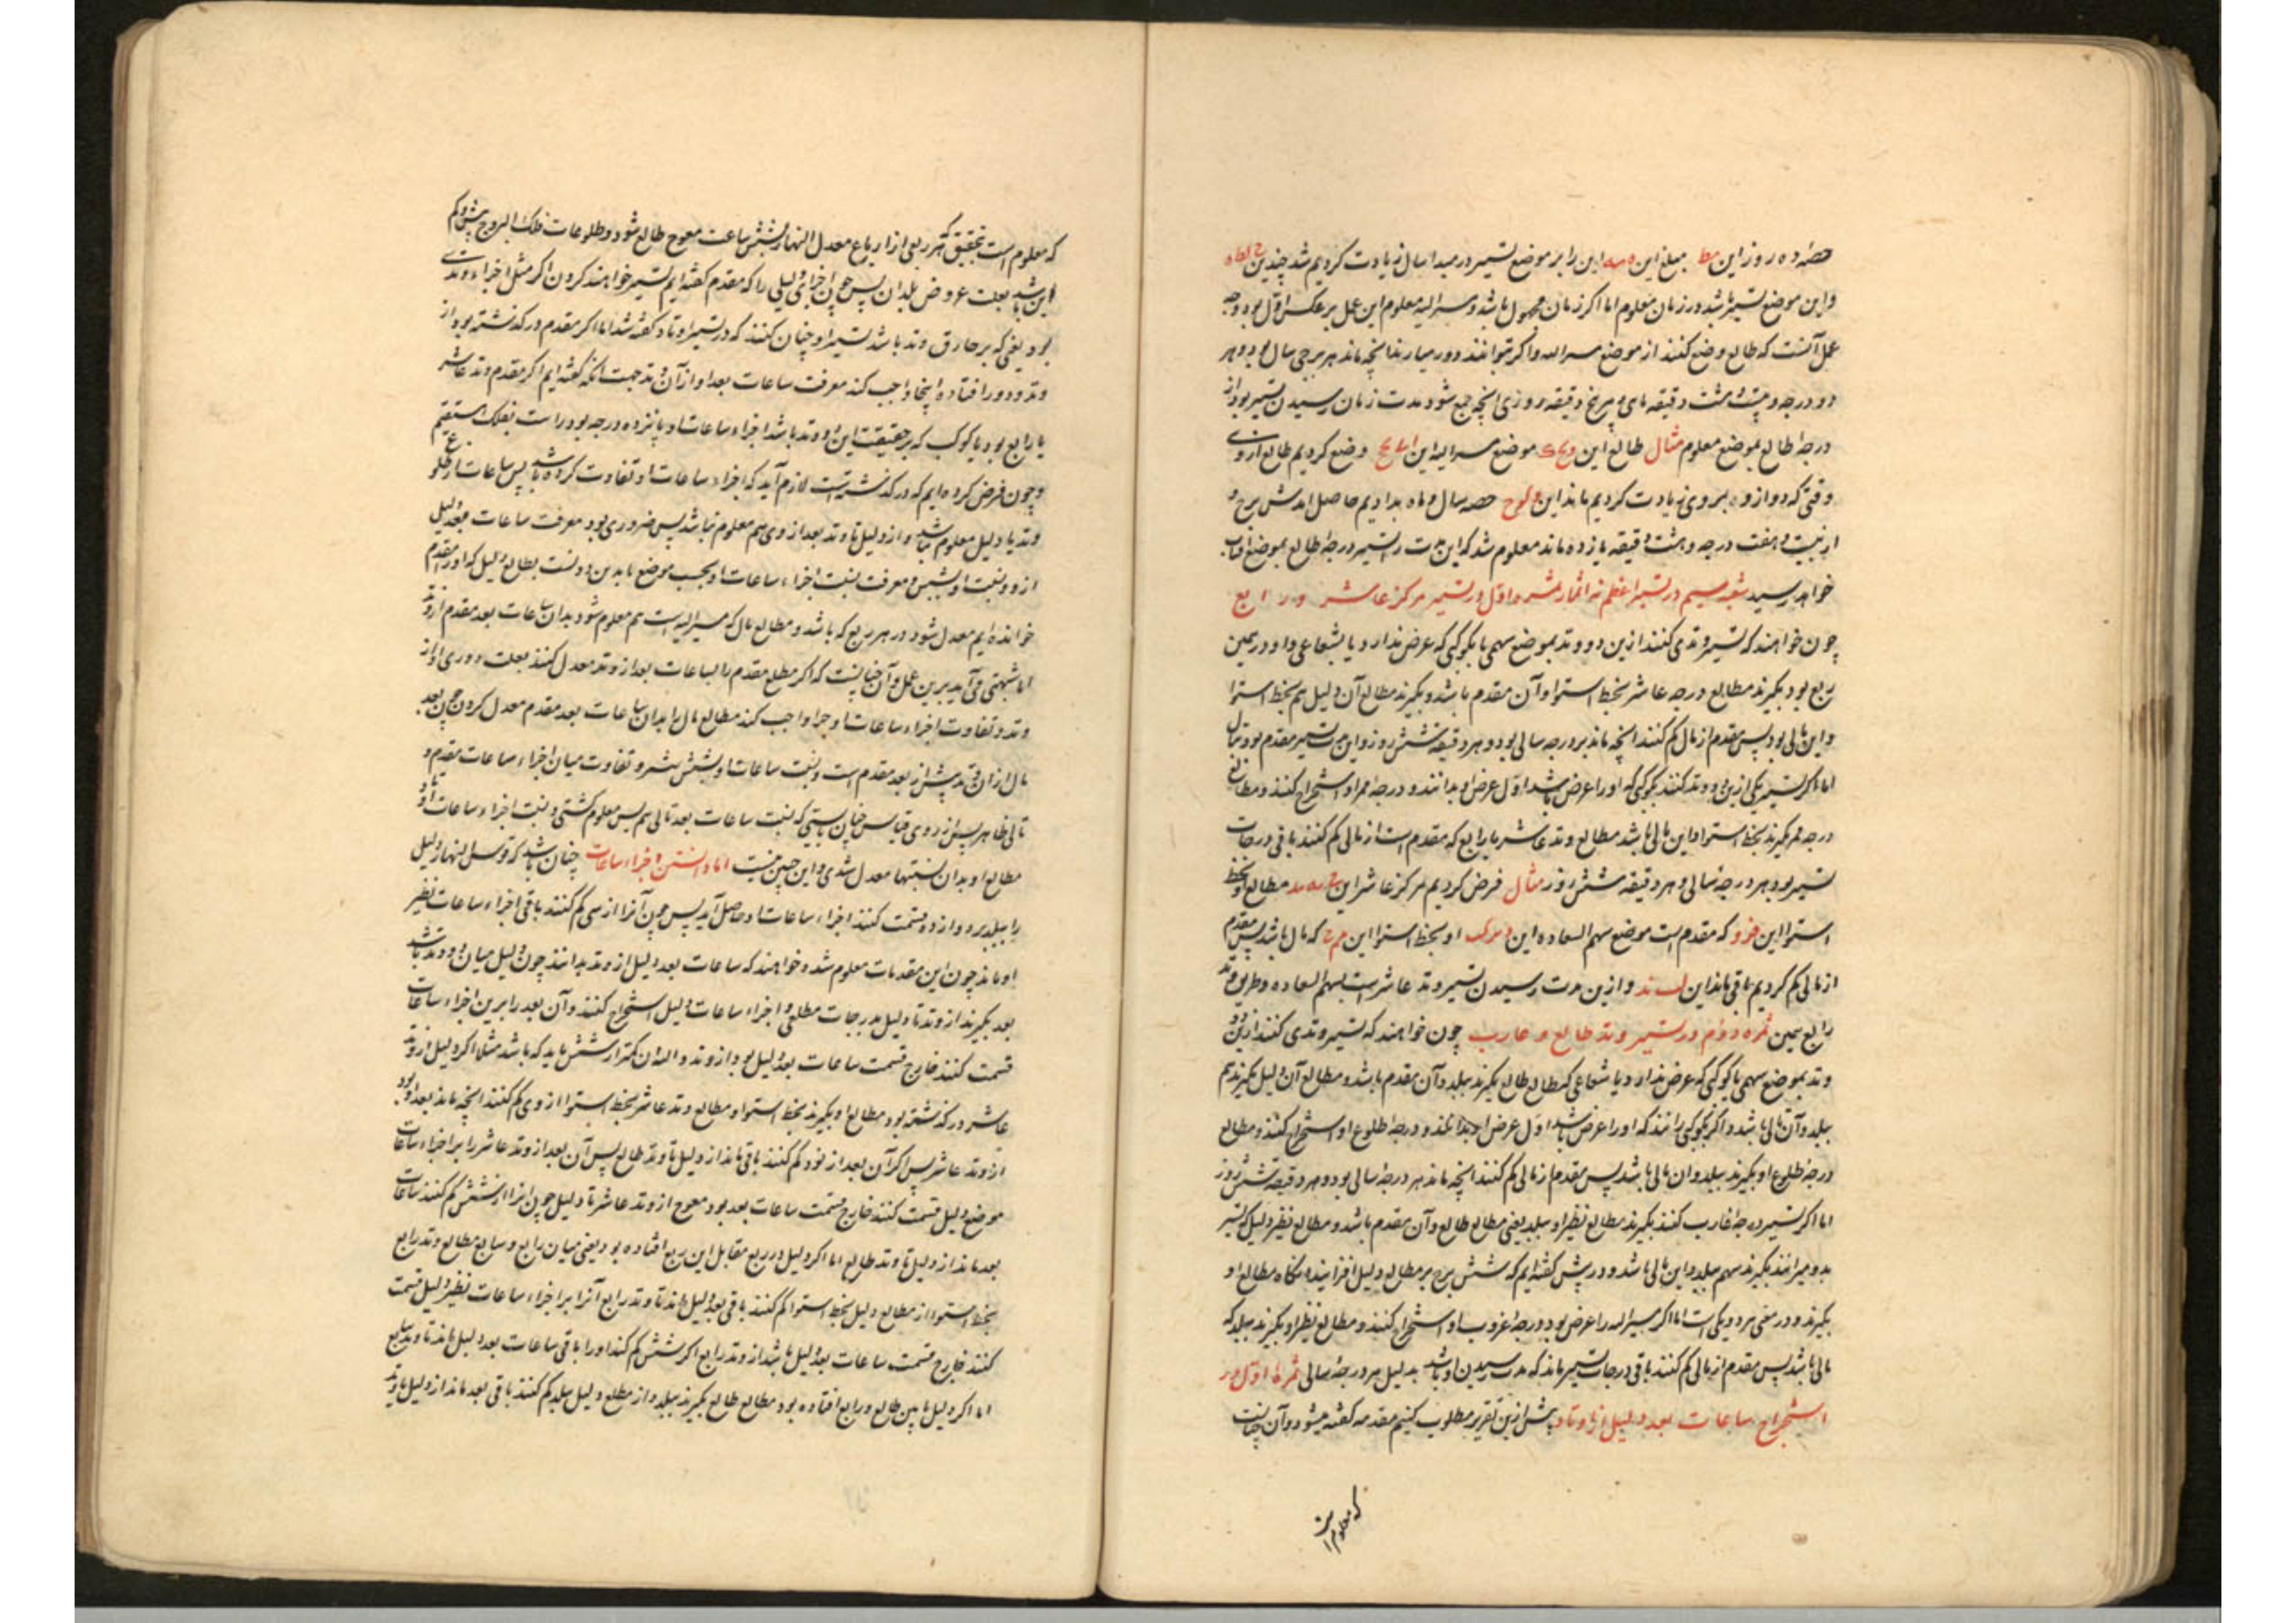 حصه ده روز این مط مبلغ این این را بر موضع تسیر در مبدا سال زیادت کردیم شد چندین
و این موضع تسیر باشد در زمان معلوم اما اکر زمان مجهول باشد و مسیر الیه معلوم این عمل بر عکس اول بود وجه
عمل آنست که طالع وضع کنند از موضع و اکر نتوانند دور بیارند آنچه ماند هر برجی سال بود و هر
دو درجه و دقیقه روزی آنچه جمع شود مدت زمان رسیدن تسیر بود از
درجهٔ طالع بموضع معلوم مثال طالع این موضع مسیر الیه این وضع کردیم طالع از وی
وقتی که دوازده بر وی زیادت کردیم ماند این حصه سال و ماه بدادیم حاصل آمد شش برج و
و هفت درجه و هشت دقیقه یازده ماند معلوم شد که این مدت را تسیر درجهٔ طالع بموضع آفتاب
خواهد رسید شعبه سیم در تسیر اعظم ثمره اول در تسیر مرکز عاشر و رابع
چون خواهند که تسیر وتدی کنند ازین دو وتد بموضع سهمی یا کوکبی که عرض ندارد یا بشعاعی و او در یمین
ربع بود بکیرند مطالع درجه عاشر بخط استوا و آن مقدم باشد و بکیرند مطالع آن دلیل هم بخط استوا
و این تالی بود پس مقدم از تالی کم کنند آنچه ماند هر درجه سالی بود و هر دقیقه شش روز و این مدت تسیر مقدم بود بتالی
اما اکر تسیر یکی ازین دو وتد کنند بکوکبی که او را عرض باشد اول عرض او بدانند و درجه ممر او استخراج کنند و مطالع
درجه ممر بکیرند بخط استوا و این تالی باشد مطالع وتد عاشر یا رابع که مقدم است از تالی کم کنند باقی درجات
تسیر بود هر درجهٔ سالی و هر دقیقه شش روز مثال فرض کردیم مرکز عاشر این مطالع او بخط
استوا این که مقدم است موضع سهم السعاده این او بخط استوا این که تالی باشد پس مقدم
از تالی کم کردیم باقی ماند این و ازین مدت رسیدن تسیر وتد عاشر است بسهم السعاده و طریق وتد
رابع همین ثمره دوم در تسیر وتد طالع و غارب چون خواهند که تسیر وتدی کنند ازین دو
وتد بموضع سهمی یا کوکبی که عرض ندارد یا شعاعی که مطالع طالع بکیرند ببلد و آن مقدم باشد و مطالع آن دلیل بکیرند هم
ببلد و آن تالی باشد و اکر بکوکبی رانند که او را عرض باشد اول عرض او بدانند و درجهٔ طلوع او استخراج کنند و مطالع
درجهٔ طلوع او بکیرند ببلد و آن تالی باشد پس مقدم از تالی کم کنند آنچه ماند هر درجهٔ سالی بود و هر دقیقه شش روز
اما اکر تسیر درجهٔ غارب کنند بکیرند مطالع نظیر او ببلد یعنی مطالع طالع و آن مقدم باشد و مطالع نظیر دلیل که تسیر
بدو میرانند بکیرند هم ببلد و این تالی باشد و در پیش کفته ایم که شش برج بر مطالع دلیل افزایند آنکاه مطالع او
بکیرند و در معنی هر دو یکی است اما اکر مسیر الیه را عرض بود درجهٔ غروب او استخراج کنند و مطالع نظیر او بکیرند ببلد که
تالی باشد پس مقدم از تالی کم کنند باقی درجات تسیر ماند که مدت رسیدن او باشد بدلیل هر درجهٔ سالی ثمرهٔ اول در
استخراج ساعات بعد دلیل از اوتاد پیش ازین تقریر مطلوب کنیم مقدمه کفته میشود و آن چنانست
که معلوم است
که معلوم است بتحقیق که هر ربعی از ارباع معدل النهار بشش ساعت معوج طالع شود و مطلوعات فلک البروج بیش و کم
ازین باشد بعلت عروض بلدان پس چون اجزای دلیلی را که مقدم کفته ایم تسیر خواهند کردن اکر مثل اجزاء وتدی
بود یعنی که بر حاق وتد باشد تسیر او چنان کنند که در تسیر اوتاد کفته شد اما اکر مقدم در کذشته بود از
وتد و دور افتاده اینجا واجب کند معرفت ساعات بعد او از آن وتد جهت آنکه کفته ایم اکر مقدم وتد عاشر
یا رابع بود یا کوکب که بر حقیقت این دو وتد باشد اجزاء ساعات او پانزده درجه بود راست بفلک مستقیم
و چون فرض کرده ایم که در کذشته است لازم آید که اجزاء ساعات او تفاوت کرده باشد پس ساعات از طلوع
وتد یا دلیل معلوم نباشد و از دلیل تا وتد بعد از وی هم معلوم نباشد پس ضروری بود معرفت ساعات بعد دلیل
از وتد و نسبت او بشش و معرفت نسبت اجزاء ساعات او بحسب موضع تا بدین دو نسبت مطالع دلیل که او را مقدم
خوانده ایم معدل شود در هر ربع که باشد و مطالع تالی که مسیر الیه است هم معلوم شود بدان ساعات بعد مقدم از وتد
اما شبهتی می آید برین عمل و آن چنانست که اکر مطلع مقدم را بساعات بعد از وتد معدل کنند بعلت دوری او از
وتد و تفاوت اجزاء ساعات او چرا واجب کند مطالع تالی را بدان ساعات بعد مقدم معدل کردن چون بعد
تالی از آن وتد بیش از بعد مقدم است و نسبت ساعات او بشش بیشتر و تفاوت میان اجزاء ساعات مقدم و
تالی ظاهر پس از روی قیاس چنان بایستی که نسبت ساعات بعد تالی هم پس معلوم کشتی و نسبت اجزاء ساعات او تا
مطالع او بدان نسبتها معدل شدی و این چنین نیست اما دانستن اجزاء ساعات چنان باشد که قوس النهار دلیل
را ببلد بر دوازده قسمت کنند اجزاء ساعات او حاصل آید پس چون آنرا از سی کم کنند باقی اجزاء ساعات نظیر
او ماند چون این مقدمات معلوم شد و خواهند که ساعات بعد دلیل از وتد بدانند چون دلیل میان دو وتد باشد
بعد بکیرند از وتد تا دلیل بدرجات مطلعی و اجزاء ساعات دلیل استخراج کنند و آن بعد را برین اجزاء ساعات
قسمت کنند خارج قسمت ساعات بعد دلیل بود از وتد و الا آن کمتر از شش باید که باشد مثلا اکر دلیل از وتد
عاشر در کذشته بود مطالع او بکیرند بخط استوا و مطالع وتد عاشر بخط استوا از وی کم کنند آنچه ماند بعد او بود
از وتد عاشر پس اکر آن بعد از نود کم کنند باقی ماند از دلیل تا وتد طالع پس آن بعد از وتد عاشر را بر اجزاء ساعات
موضع دلیل قسمت کنند خارج قسمت ساعات بعد بود معوج از وتد عاشر تا دلیل چون آنرا از شش کم کنند ساعات
بعد ماند از دلیل تا وتد طالع اما اکر دلیل در ربع مقابل این ربع افتاده بود یعنی میان رابع و سابع مطالع وتد رابع
بخط استوا از مطالع دلیل بخط استوا کم کنند باقی بعد دلیل ماند تا وتد رابع آنرا بر اجزاء ساعات نظیر دلیل قسمت
کنند خارج قسمت ساعات بعد دلیل باشد از وتد رابع اکر از شش کم کنند او را باقی ساعات بعد دلیل ماند تا وتد سابع
اما اکر دلیل ما بین طالع و رابع افتاده بود مطالع طالع بکیرند ببلد و از مطلع دلیل ببلد کم کنند باقی بعد ماند از دلیل تا وتد